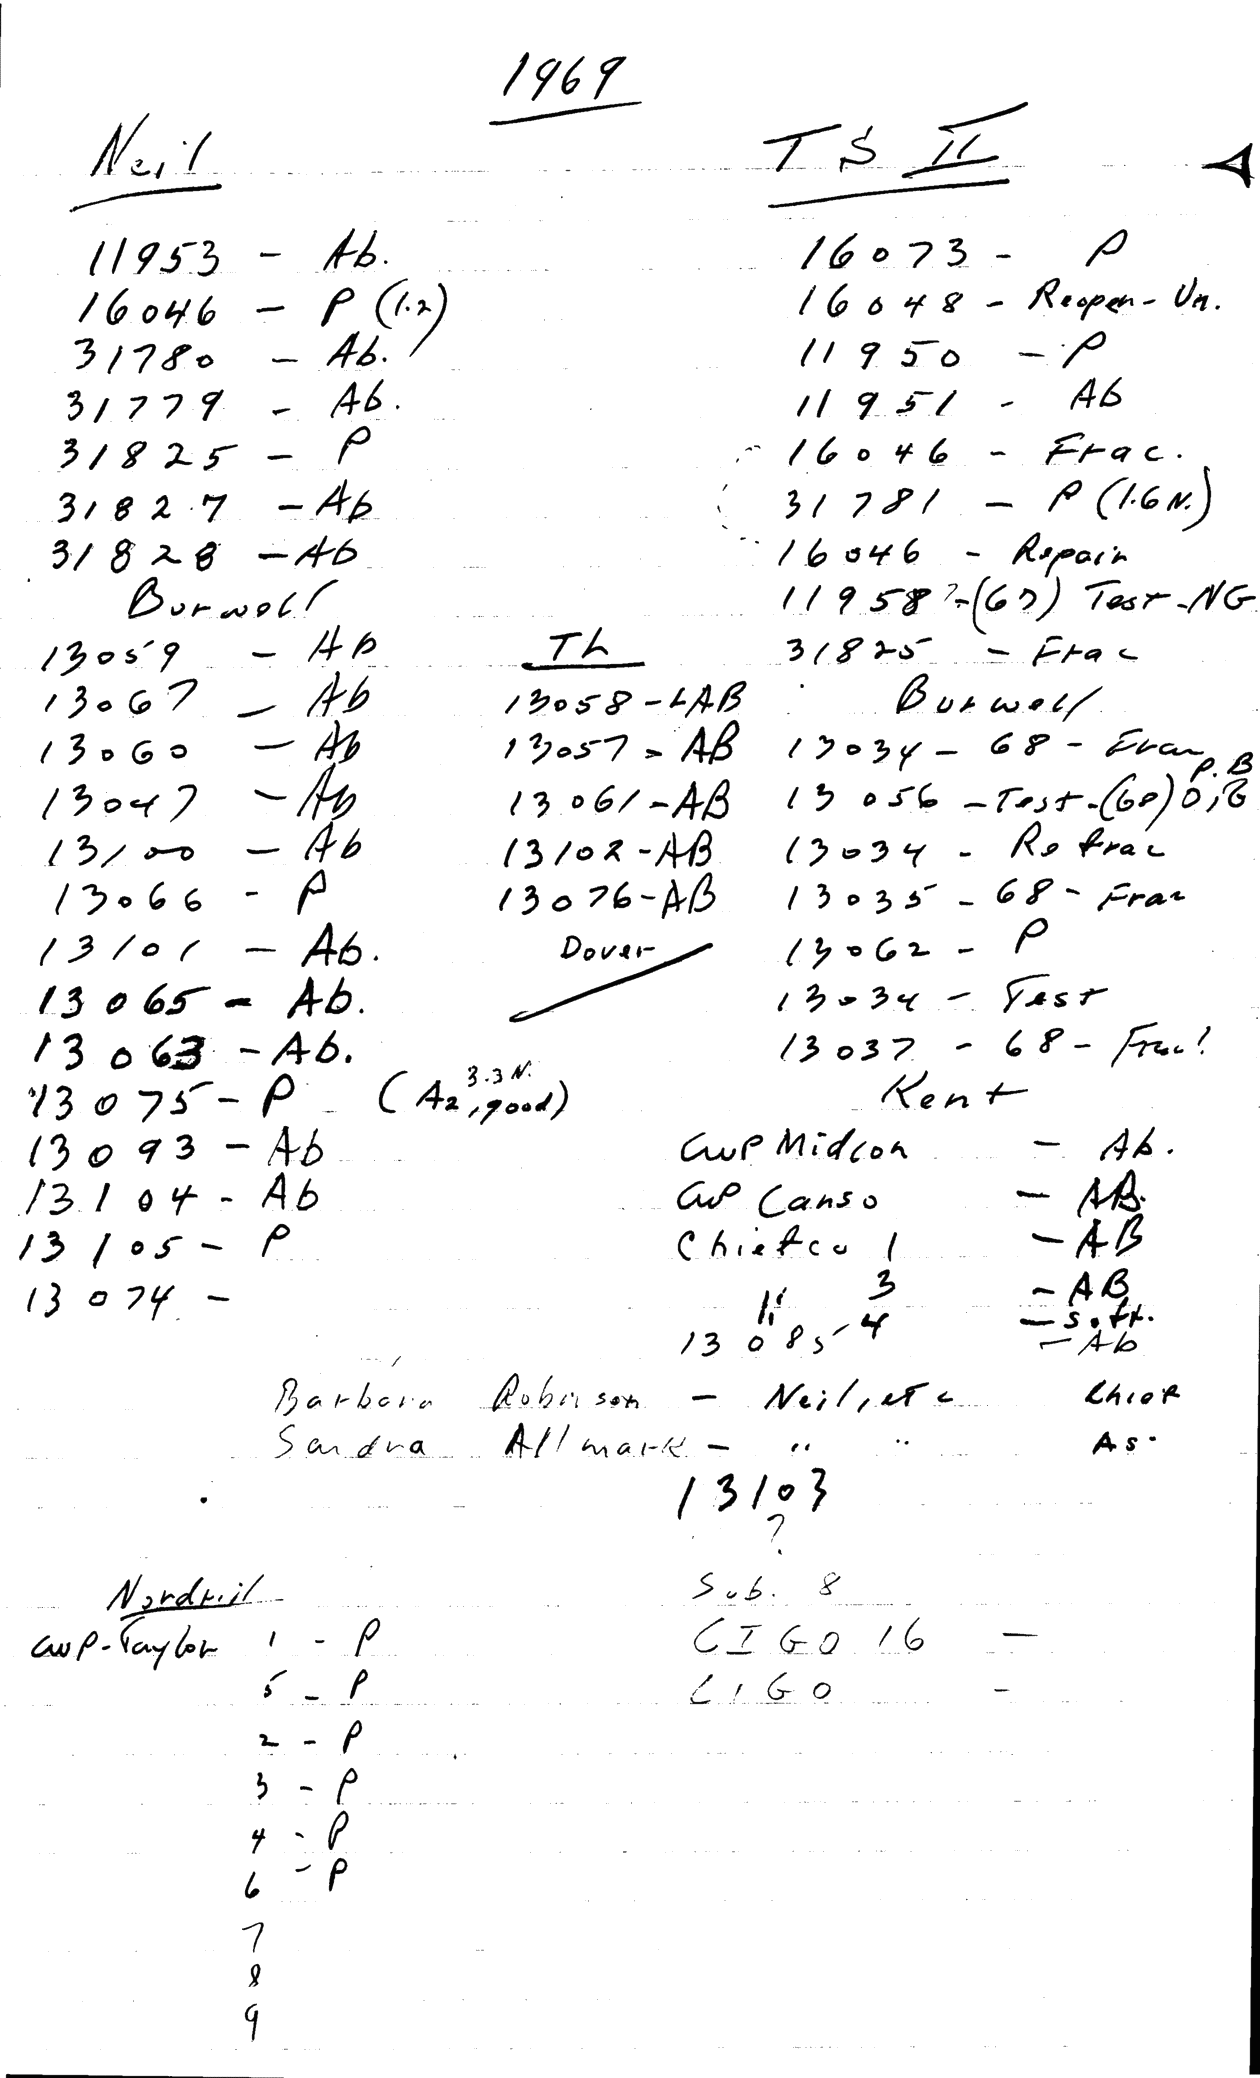 1969
Neil
11953 - Ab.
16046 - P (1.2)
31780 - Ab.
31779 - Ab.
31825 - P
31827 - Ab
31828 - Ab
Burwell
13059 - Ab
13067 - Ab
13060 - Ab
13047 - Ab
13100 - Ab
13066 - P
13101 - Ab.
13065 - Ab.
13063 - Ab.
13075 - P (A2, good) 3.3 N.
13093 - Ab
13104 - Ab
13105 - P
13074 -
Th
13058 - AB
13057 - AB
13061 - AB
13102 - AB
13076 - AB
Dover
TS II
16073 - P
16048 - Reopen - Un.
11950 - P
11951 - Ab
16046 - Frac.
31781 - P (1.6 N.)
16046 - Repair
11958 ? - (67) Test - NG
31825 - Frac
Burwell
13034 - 68 - Frac
P.B
13056 - Test - (68) O, G
13034 - Refrac
13035 - 68 - Frac
13062 - P
13034 - Test
13037 - 68 - Frac!
Kent
CWP Midcon - Ab.
CWP Canso - AB.
Chiefco 1 - AB
" 3 - AB
" 4
13085 - Ab
Barbara Robinson - Neil, etc Chief
Sandra Allmark - " " As.
13103
?
Nordril
CWP-Taylor 1 - P
5 - P
2 - P
3 - P
4 - P
6 - P
7
8
9
Sub. 8
CIGO 16 -
CIGO -